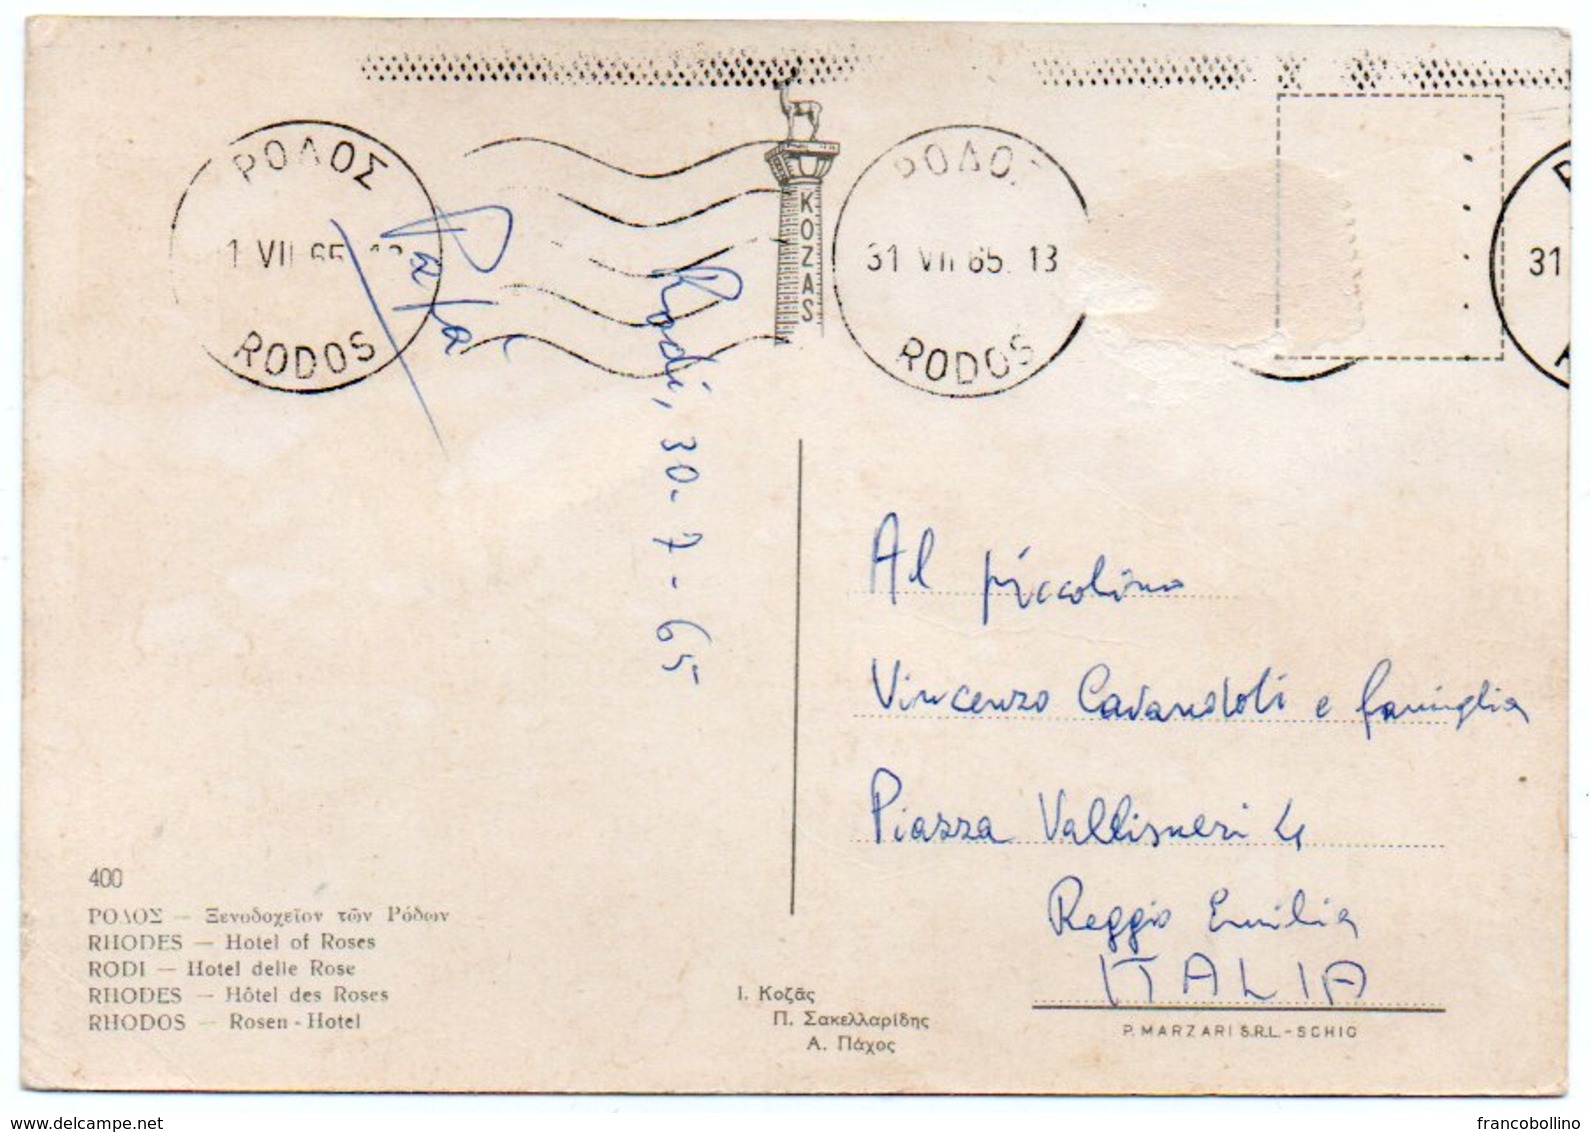 ΡΟΔΟΣ
1 VII 65
RODOS
KOZAS
ΡΟΔΟΣ
31 VII 65. 13
RODOS
31
Rodi, 30-7-65
Al piccolino
Vincenzo Cavandoli e famiglia
Piazza Vallisneri 4
Reggio Emilia
ITALIA
400
ΡΟΔΟΣ — Ξενοδοχεῖον τῶν Ρόδων
RHODES — Hotel of Roses
RODI — Hotel delle Rose
RHODES — Hôtel des Roses
RHODOS — Rosen - Hotel
Ι. Κοζᾶς
Π. Σακελλαρίδης
Α. Πάχος
P. MARZARI S.R.L. - SCHIO
www.delcampe.net
francobollino